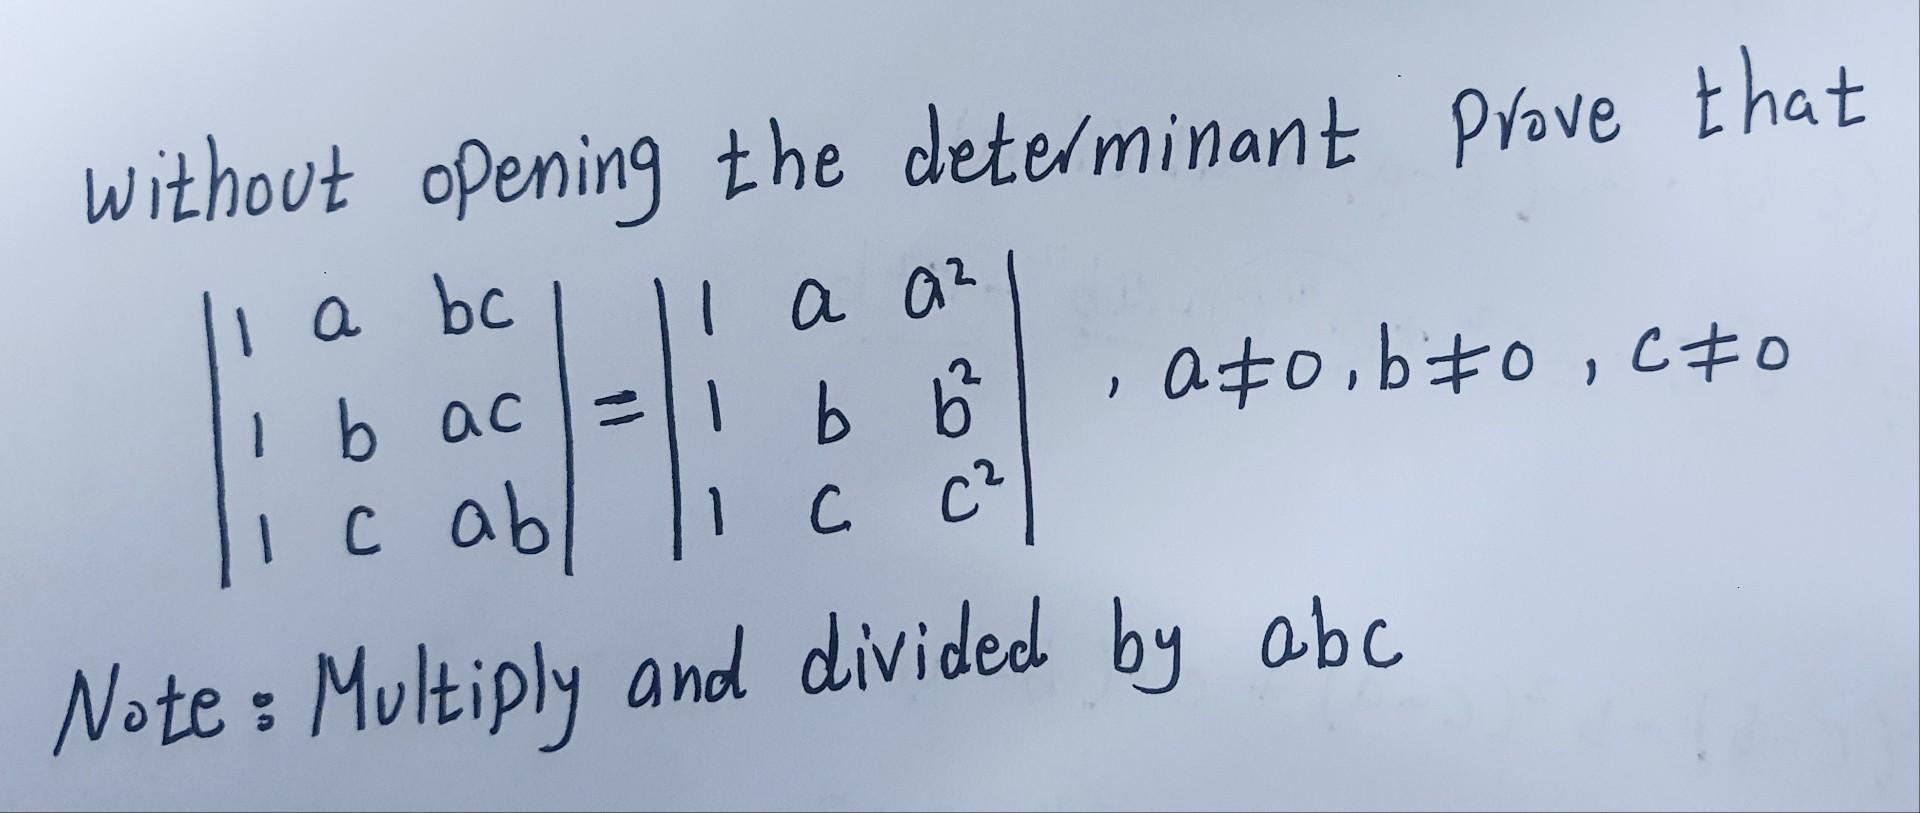 without opening the determinant prove that
| 1 a bc | = | 1 a a² |
| 1 b ac | = | 1 b b² | , a≠0, b≠0, c≠0
| 1 c ab | | 1 c c² |
Note: Multiply and divided by abc